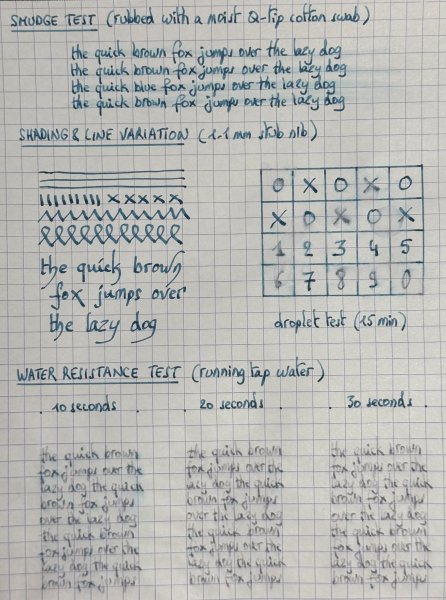 SMUDGE TEST (rubbed with a moist Q-tip cotton swab)
the quick brown fox jumps over the lazy dog
the quick brown fox jumps over the lazy dog
the quick blue fox jumps over the lazy dog
the quick brown fox jumps over the lazy dog
SHADING & LINE VARIATION (1.1 mm stub nib)
the quick brown
fox jumps over
the lazy dog
O X O X O
X O X O X
1 2 3 4 5
6 7 8 9 0
droplet test (15 min)
WATER RESISTANCE TEST (running tap water)
. 10 seconds . 20 seconds . . 30 seconds .
the quick brown
fox jumps over the
lazy dog the quick
brown fox jumps
over the lazy dog
the quick brown
fox jumps over the
lazy dog the quick
brown fox jumps
the quick brown
fox jumps over the
lazy dog the quick
brown fox jumps
over the lazy dog
the quick brown
fox jumps over the
lazy dog the quick
brown fox jumps
the quick brown
fox jumps over the
lazy dog the quick
brown fox jumps
over the lazy dog
the quick brown
fox jumps over the
lazy dog the quick
brown fox jumps